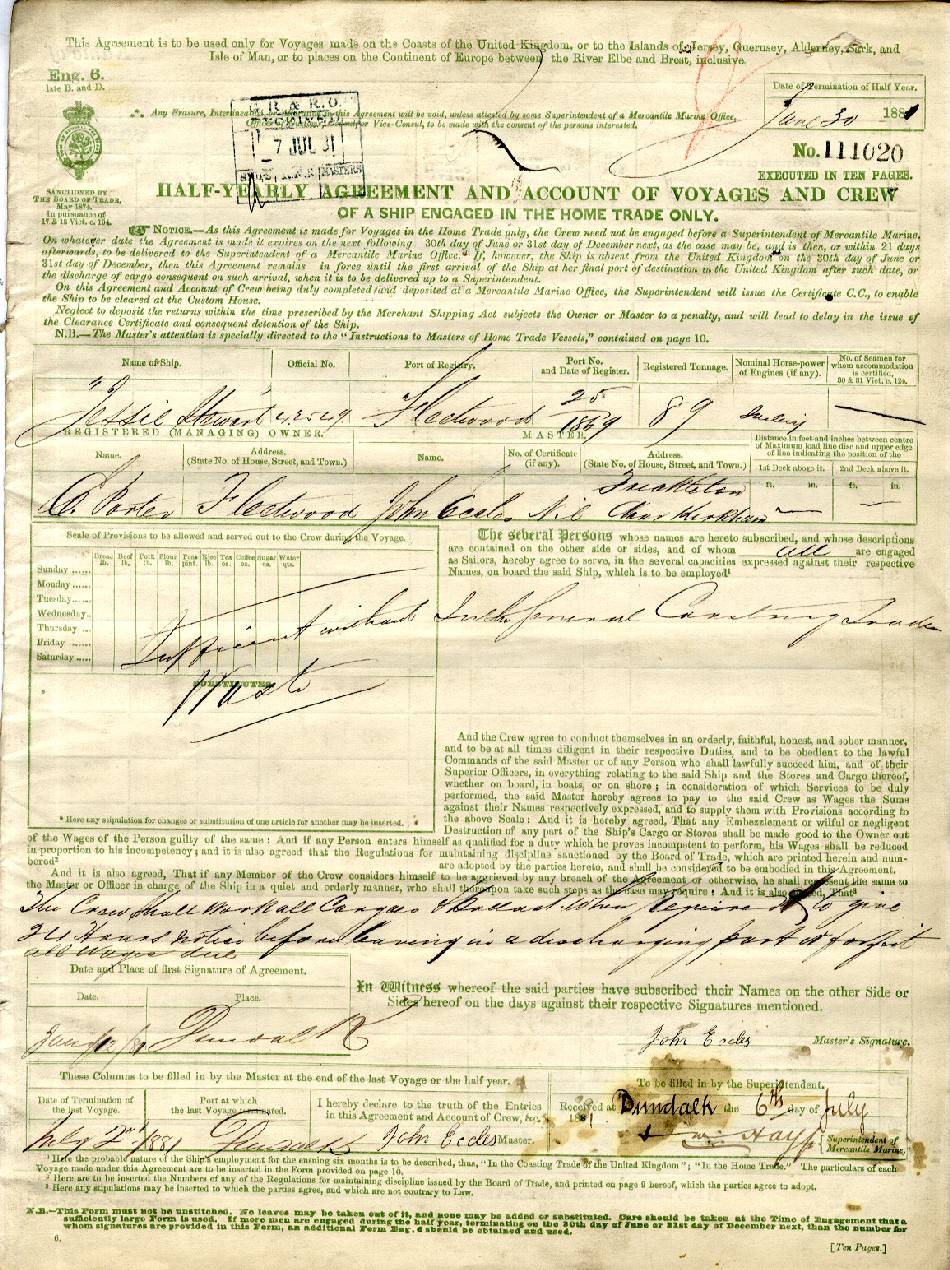 This Agreement is to be used only for Voyages made on the Coasts of the United Kingdom, or to the Islands of Jersey, Guernsey, Alderney, Sark, and
Isle of Man, or to places on the Continent of Europe between the River Elbe and Brest, inclusive.
Eng. 6.
late B. and D.
Date of Termination of Half Year.
June 30 1881
Any Erasure, in this Agreement will be void, unless attested by some Superintendent of a Mercantile Marine Office,
or Vice-Consul, to be made with the consent of the persons interested.
7 JUL 81
No. 111020
EXECUTED IN TEN PAGES.
SANCTIONED BY
THE BOARD OF TRADE,
May 1874,
In pursuance of
17 & 18 Vict. c. 104.
HALF-YEARLY AGREEMENT AND ACCOUNT OF VOYAGES AND CREW
OF A SHIP ENGAGED IN THE HOME TRADE ONLY.
NOTICE.—As this Agreement is made for Voyages in the Home Trade only, the Crew need not be engaged before a Superintendent of Mercantile Marine.
On whatever date the Agreement is made it expires on the next following 30th day of June or 31st day of December next, as the case may be, and is then, or within 21 days
afterwards, to be delivered to the Superintendent of a Mercantile Marine Office. If, however, the Ship is absent from the United Kingdom on the 30th day of June or
31st day of December, then this Agreement remains in force until the first arrival of the Ship at her final port of destination in the United Kingdom after such date, or
the discharge of cargo consequent on such arrival, when it is to be delivered up to a Superintendent.
On this Agreement and Account of Crew being duly completed and deposited at a Mercantile Marine Office, the Superintendent will issue the Certificate C.C., to enable
the Ship to be cleared at the Custom House.
Neglect to deposit the returns within the time prescribed by the Merchant Shipping Act subjects the Owner or Master to a penalty, and will lead to delay in the issue of
the Clearance Certificate and consequent detention of the Ship.
N.B.—The Master's attention is specially directed to the "Instructions to Masters of Home Trade Vessels," contained on page 10.
Name of Ship. Official No. Port of Registry. Port No. and Date of Register. Registered Tonnage. Nominal Horse-power of Engines (if any). No. of Seamen for whom accommodation is certified, 30 & 31 Vict. c. 124.
"Jessie Stewart" Fleetwood 25/1869 89
REGISTERED (MANAGING) OWNER. MASTER. Distance in feet and inches between centre of Maximum load line disc and upper edge of line indicating the position of the
Name. Address. (State No. of House, Street, and Town.) Name. No. of Certificate (if any). Address. (State No. of House, Street, and Town.) 1st Deck above it. 2nd Deck above it.
ft. in. ft. in.
C. Porter Fleetwood John Eccles Nil Freckleton Near Kirkham
Scale of Provisions to be allowed and served out to the Crew during the Voyage.
Bread lb. Beef lb. Pork lb. Flour lb. Peas pint. Rice lb. Tea oz. Coffee oz. Sugar oz. Water qts.
Sunday
Monday
Tuesday
Wednesday
Thursday
Friday
Saturday
Sufficient without
Waste
SUBSTITUTES.
* Here any stipulation for changes or substitution of one article for another may be inserted. *
The several Persons whose names are hereto subscribed, and whose descriptions
are contained on the other side or sides, and of whom all are engaged
as Sailors, hereby agree to serve, in the several capacities expressed against their respective
Names, on board the said Ship, which is to be employed¹
In the General Coasting Trade
And the Crew agree to conduct themselves in an orderly, faithful, honest, and sober manner,
and to be at all times diligent in their respective Duties, and to be obedient to the lawful
Commands of the said Master or of any Person who shall lawfully succeed him, and of their
Superior Officers, in everything relating to the said Ship and the Stores and Cargo thereof,
whether on board, in boats, or on shore; in consideration of which Services to be duly
performed, the said Master hereby agrees to pay to the said Crew as Wages the Sums
against their Names respectively expressed, and to supply them with Provisions according to
the above Scale: And it is hereby agreed, That any Embezzlement or wilful or negligent
Destruction of any part of the Ship's Cargo or Stores shall be made good to the Owner out
of the Wages of the Person guilty of the same: And if any Person enters himself as qualified for a duty which he proves incompetent to perform, his Wages shall be reduced
in proportion to his incompetency; and it is also agreed that the Regulations for maintaining discipline sanctioned by the Board of Trade, which are printed herein and numbered²
are adopted by the parties hereto, and shall be considered to be embodied in this Agreement.
And it is also agreed, That if any Member of the Crew considers himself to be aggrieved by any breach of the Agreement or otherwise, he shall represent the same to
the Master or Officer in charge of the Ship in a quiet and orderly manner, who shall thereupon take such steps as the case may require: And it is also agreed, That³
The Crew Shall Work all Cargoes & Ballast when Required to give
24 Hours notice before leaving in a discharging port or forfeit
all Wages due
Date and Place of first Signature of Agreement.
Date. Place.
Dundalk
In Witness whereof the said parties have subscribed their Names on the other Side or
Sides hereof on the days against their respective Signatures mentioned.
John Eccles Master's Signature.
These Columns to be filled in by the Master at the end of the last Voyage or the half year.
Date of Termination of the last Voyage. Port at which the last Voyage terminated.
July 2nd/1881 Dundalk
I hereby declare to the truth of the Entries
in this Agreement and Account of Crew, &c.
John Eccles Master.
To be filled in by the Superintendent.
Received at Dundalk the 6th day of July
1881
Superintendent of
Mercantile Marine.
¹ Here the probable nature of the Ship's employment for the ensuing six months is to be described, thus, "In the Coasting Trade of the United Kingdom"; "In the Home Trade." The particulars of each
Voyage made under this Agreement are to be inserted in the Form provided on page 10.
² Here are to be inserted the Numbers of any of the Regulations for maintaining discipline issued by the Board of Trade, and printed on page 9 hereof, which the parties agree to adopt.
³ Here any stipulations may be inserted to which the parties agree, and which are not contrary to Law.
N.B.—This Form must not be unstitched. No leaves may be taken out of it, and none may be added or substituted. Care should be taken at the Time of Engagement that a
sufficiently large Form is used. If more men are engaged during the half year, terminating on the 30th day of June or 31st day of December next, than the number for
whom signatures are provided in this form, an additional Form Eng. 6 should be obtained and used.
6.
[Ten Pages.]